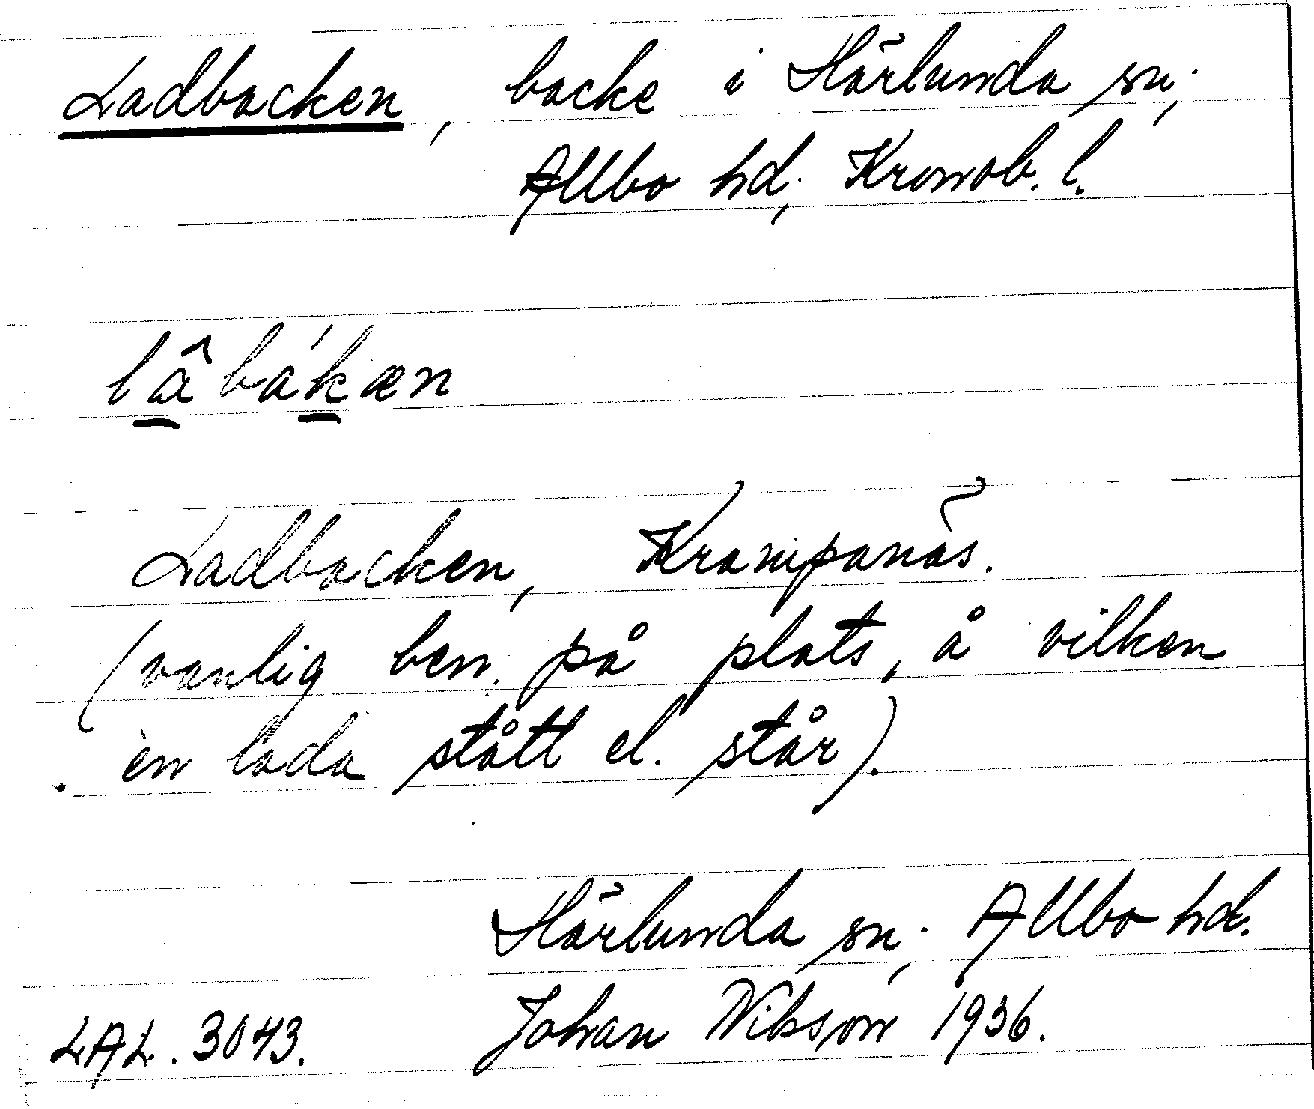 Ladbacken, backe i Härlunda sn,
Allbo hd, Kronob. l.
lâbákæn
Ladbacken, Krampanäs.
(vanlig ben. på plats, å vilken
en lada stått el. står).
Härlunda sn, Allbo hd.
LAL. 3043. Johan Nilsson 1936.